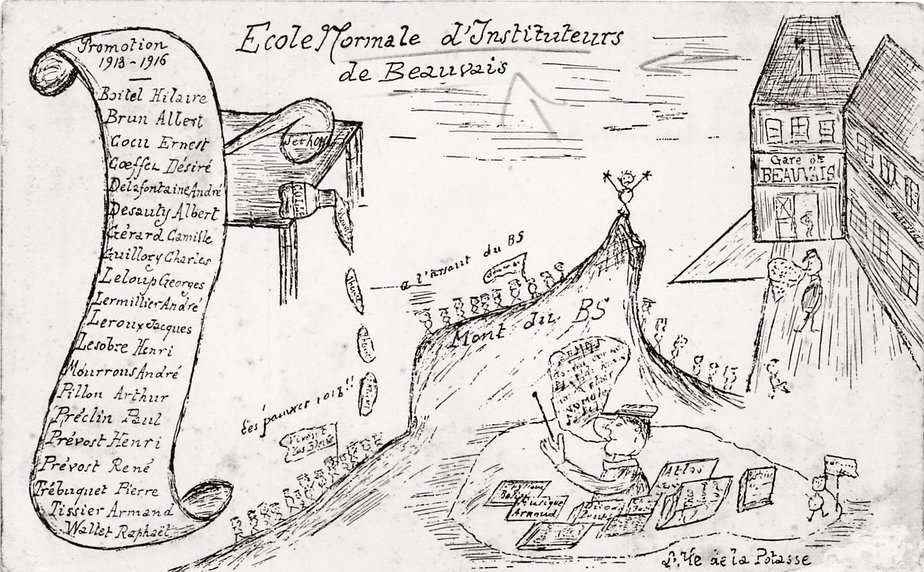 Ecole Normale d'Instituteurs
de Beauvais
Promotion
1913-1916
Boitel Hilaire
Brun Albert
Cocu Ernest
Cœffet Désiré
Delafontaine André
Desauty Albert
Gérard Camille
Guillory Charles
Leloup Georges
Lermillier André
Leroux Jacques
Lesobre Henri
Mourrous André
Pillon Arthur
Préclin Paul
Prévost Henri
Prévost René
Trébuquet Pierre
Tissier Armand
Wallet Raphaël
Gare de
BEAUVAIS
a l'assaut du BS
Mont du BS
Les pauvres 1018!!
Atlas
Arnaud
L'Ile de la Potasse